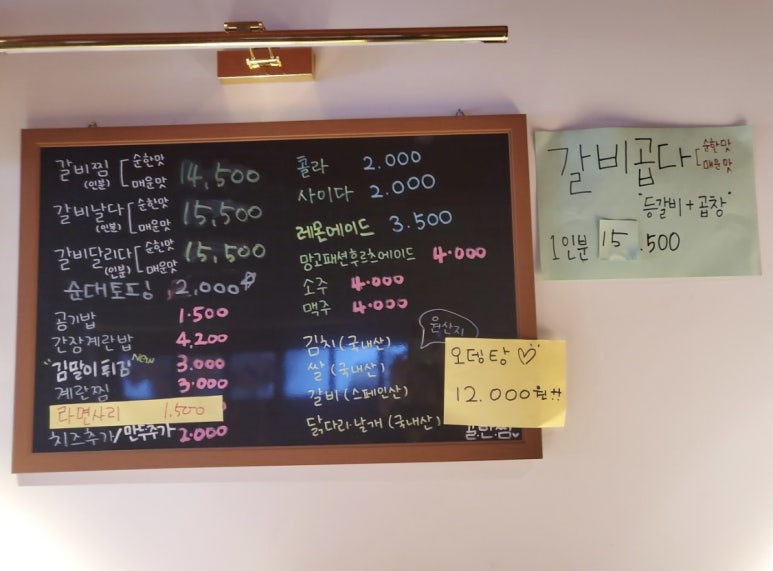 갈비찜 [순한맛 14,500
(인분) 매운맛
갈비날다 [순한맛 15,500
(인분) 매운맛
갈비달리다 [순한맛 15,500
(인분) 매운맛
순대토핑 2.000
공기밥 1.500
간장계란밥 4,200
"김말이튀김" New 3.000
계란찜 3.000
라면사리 1.500
치즈추가/만두추가 2.000
콜라 2.000
사이다 2.000
레몬에이드 3.500
망고패션후르츠에이드 4.000
소주 4.000
맥주 4.000
원산지
김치 (국내산)
쌀 (국내산)
갈비 (스페인산)
닭다리·날개 (국내산)
오뎅탕 ♡
12.000원!!
갈비곱다 [순한맛
매운맛
"등갈비+곱창"
1인분 15.500